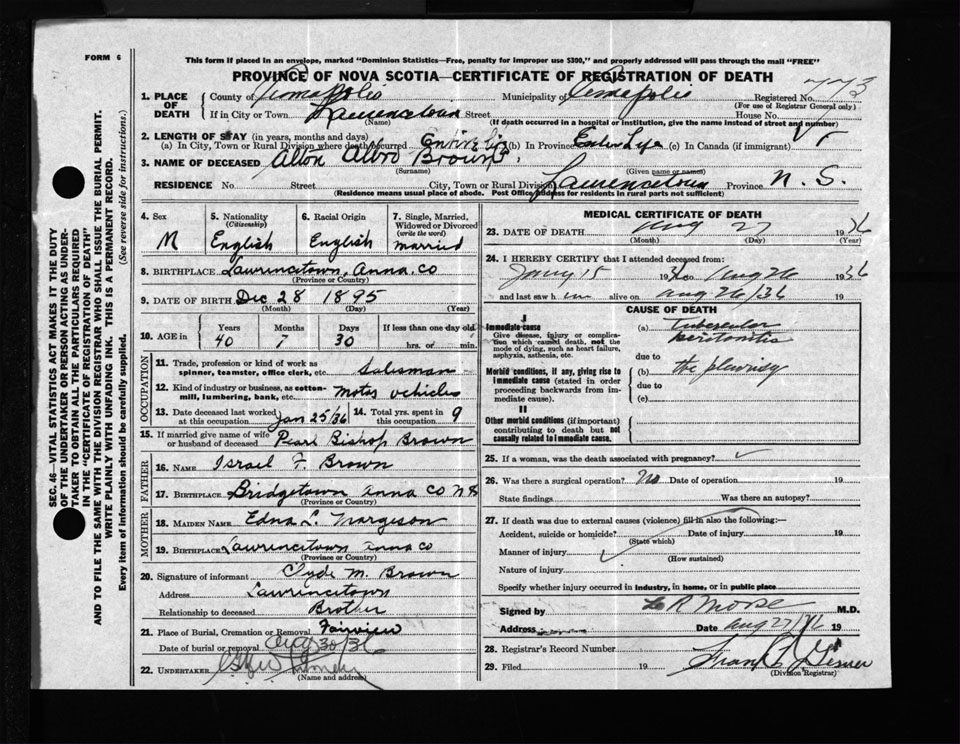 FORM 6
This form if placed in an envelope, marked "Dominion Statistics—Free, penalty for improper use $300," and properly addressed will pass through the mail "FREE"
PROVINCE OF NOVA SCOTIA—CERTIFICATE OF REGISTRATION OF DEATH
SEC. 46—VITAL STATISTICS ACT MAKES IT THE DUTY
OF THE UNDERTAKER OR PERSON ACTING AS UNDER-
TAKER TO OBTAIN ALL THE PARTICULARS REQUIRED
IN THE "CERTIFICATE OF REGISTRATION OF DEATH"
AND TO FILE THE SAME WITH THE DIVISION REGISTRAR WHO SHALL ISSUE THE BURIAL PERMIT.
WRITE PLAINLY WITH UNFADING INK. THIS IS A PERMANENT RECORD.
Every item of information should be carefully supplied. (See reverse side for instructions.)
1. PLACE OF DEATH
County of Annapolis Municipality of Annapolis Registered No. 773
(For use of Registrar General only)
If in City or Town Lawrencetown Street House No.
(Name) (If death occurred in a hospital or institution, give the name instead of street and number)
2. LENGTH OF STAY (in years, months and days)
(a) In City, Town or Rural Division where death occurred entire life (b) In Province Entire Life (c) In Canada (if immigrant)
3. NAME OF DECEASED Alton Albro Brown
(Surname) (Given name or names)
RESIDENCE No. Street City, Town or Rural Division Lawrencetown Province N. S.
(Residence means usual place of abode. Post Office address for residents in rural parts not sufficient)
4. Sex M
5. Nationality (Citizenship) English
6. Racial Origin English
7. Single, Married, Widowed or Divorced (write the word) married
8. BIRTHPLACE Lawrencetown, Anna. co
(Province or Country)
9. DATE OF BIRTH Dec 28 1895
(Month) (Day) (Year)
10. AGE in Years 40 Months 7 Days 30 If less than one day old hrs. or min.
OCCUPATION
11. Trade, profession or kind of work as spinner, teamster, office clerk, etc. Salesman
12. Kind of industry or business, as cotton-mill, lumbering, bank, etc. motor vehicles
13. Date deceased last worked at this occupation Jan 25/36 14. Total yrs. spent in this occupation 9
15. If married give name of wife or husband of deceased Pearl Bishop Brown
FATHER
16. NAME Israel F. Brown
17. BIRTHPLACE Bridgetown Anna CO N S
(Province or Country)
MOTHER
18. MAIDEN NAME Edna L. Margeson
19. BIRTHPLACE Lawrencetown Anna co
(Province or Country)
20. Signature of informant Clyde M. Brown
Address Lawrencetown
Relationship to deceased Brother
21. Place of Burial, Cremation or Removal Fairview
Date of burial or removal Aug 30/36
22. UNDERTAKER
(Name and address)
MEDICAL CERTIFICATE OF DEATH
23. DATE OF DEATH Aug 27 1936
(Month) (Day) (Year)
24. I HEREBY CERTIFY that I attended deceased from:
Jany 15 1936 to Aug 26 1936
and last saw him alive on Aug 26/36 19
CAUSE OF DEATH
I
Immediate cause
Give disease, injury or complication which caused death, not the mode of dying, such as heart failure, asphyxia, asthenia, etc.
(a) tubercular peritonitis
due to
Morbid conditions, if any, giving rise to immediate cause (stated in order proceeding backwards from immediate cause).
(b) the pleurisy
due to
(c)
II
Other morbid conditions (if important) contributing to death but not causally related to immediate cause.
25. If a woman, was the death associated with pregnancy?
26. Was there a surgical operation? No Date of operation 19
State findings Was there an autopsy?
27. If death was due to external causes (violence) fill in also the following:—
Accident, suicide or homicide? Date of injury 19
(State which)
Manner of injury
(How sustained)
Nature of injury
Specify whether injury occurred in industry, in home, or in public place
Signed by R Morse M.D.
Address Date Aug 27/36 19
28. Registrar's Record Number
29. Filed 19 Frank Gesner
(Division Registrar)